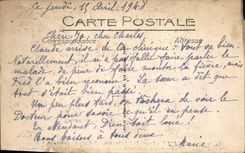 Ce jeudi 15 Avril 1948
CARTE POSTALE
Correspondance Adresse
Chère Yo, cher Charles,
Claude arrive de la clinique. Tout va bien
Naturellement, il n'a pas fallu faire parler le
malade, de peur de faire monter la fièvre, mais
Fred l'a bien reconnu. La sœur a dit que
tout s'était bien passé.
Un peu plus tard, on tâchera de voir le
Docteur pour savoir
en attendant
Bons baisers à tous deux.
Marie